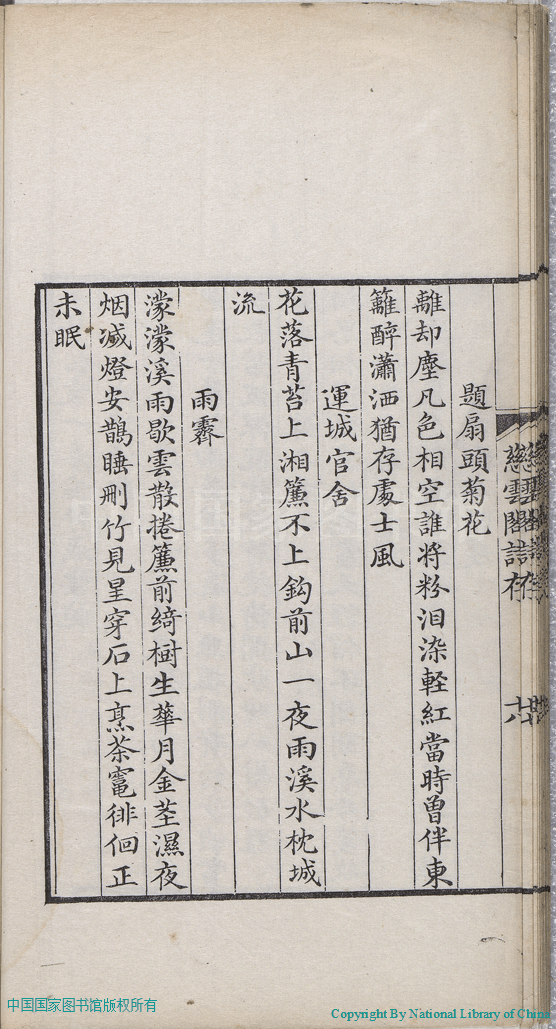 題扇頭菊花
離却塵凡色相空誰將粉泪染軽紅當時曽伴東
籬醉瀟洒猶存處士風
運城官舍
花落青苔上湘簾不上鈎前山一夜雨溪水枕城
流
雨霽
濛濛溪雨歇雲散捲簾前綺樹生華月金莖濕夜
烟减燈安鵲睡刪竹見星穿石上烹茶竈徘佪正
未眠
慈雲閣詩存
十八
中国国家图书馆版权所有
Copyright By National Library of China